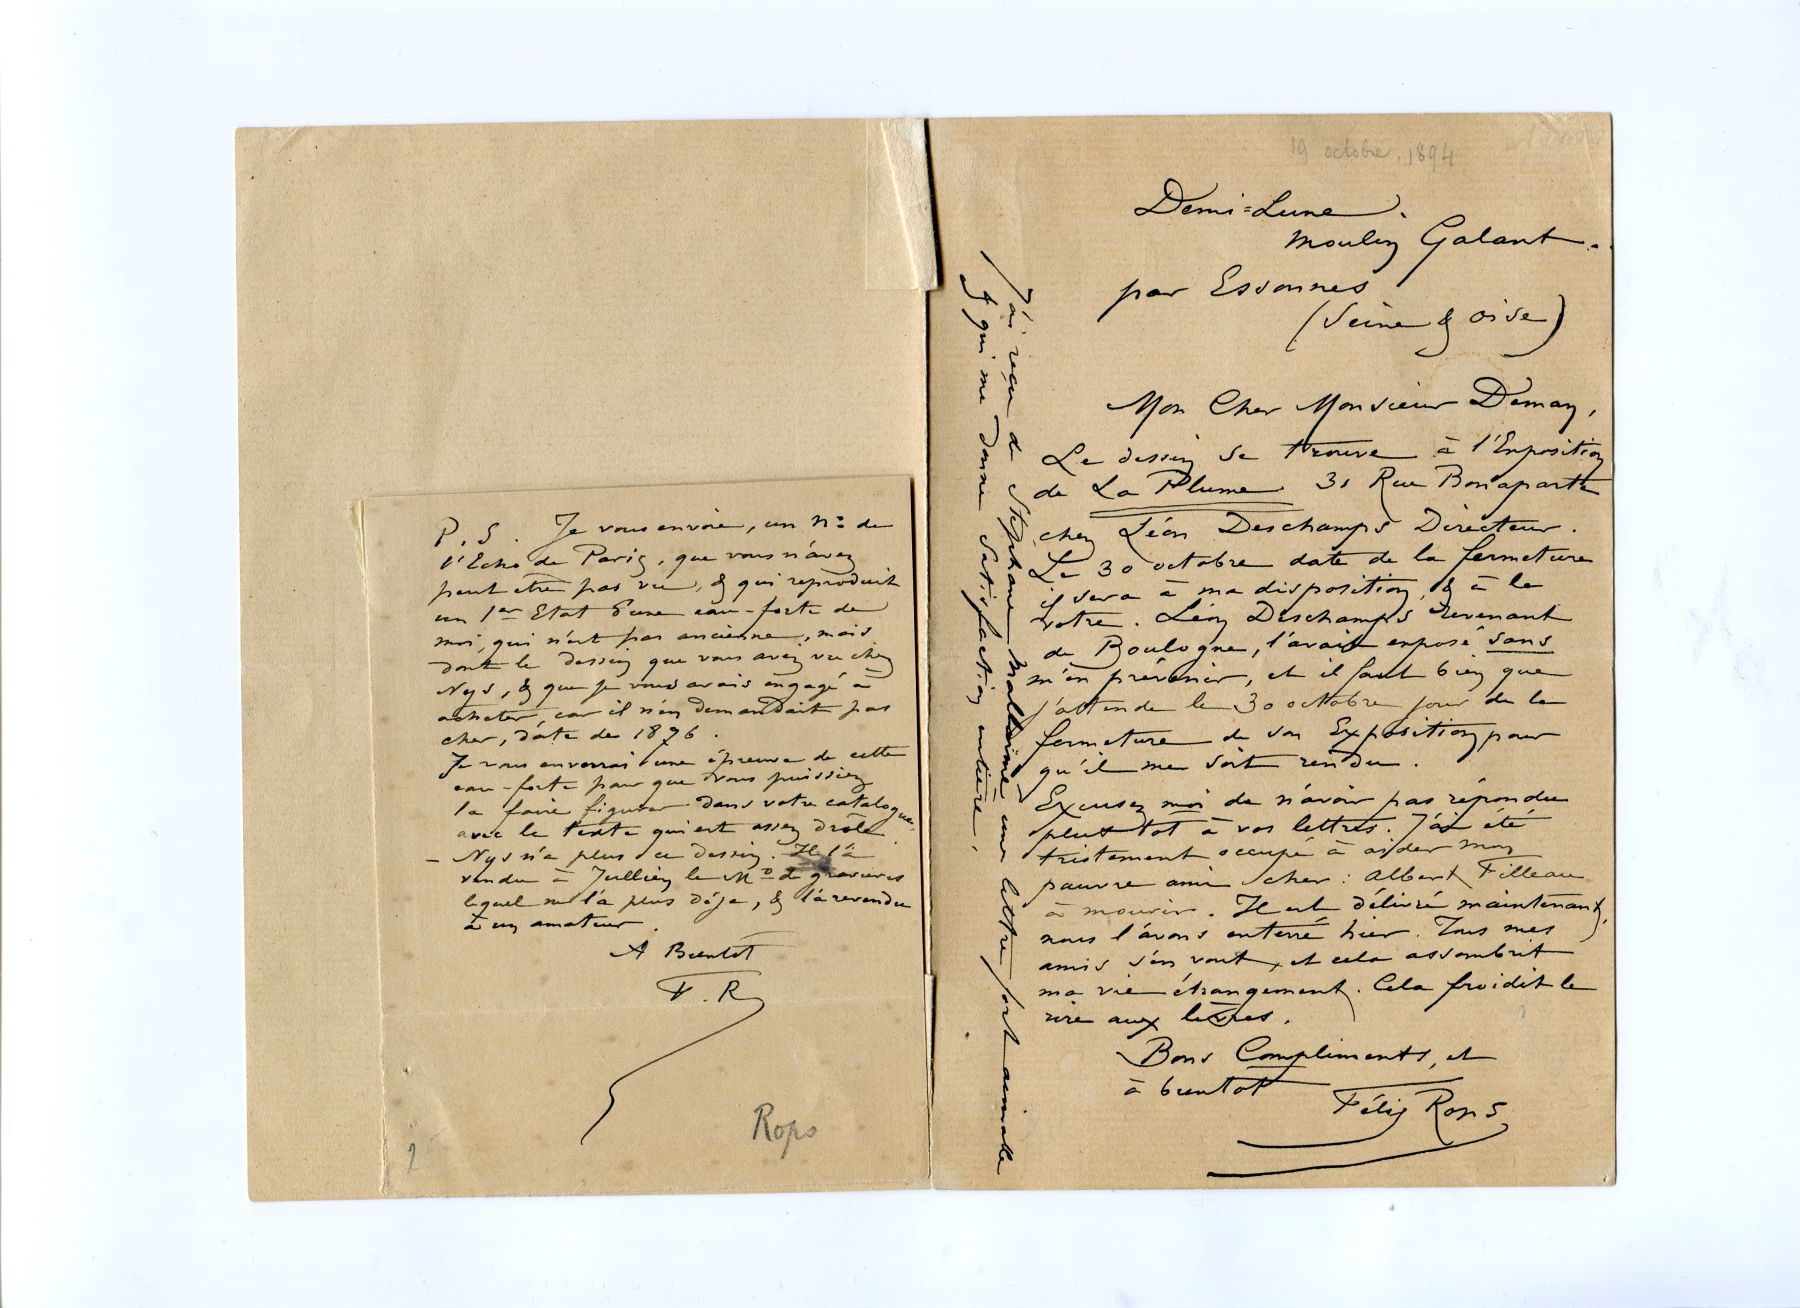 19 octobre. 1894
Demi=Lune.
Moulin Galant.
par Essonnes
(Seine & Oise)
Mon Cher Monsieur Deman,
Le dessin se trouve à l'Exposition
de La Plume 31 Rue Bonaparte
chez Léon Deschamps Directeur.
Le 30 octobre date de la fermeture
il sera à ma disposition, & à la
votre. Léon Deschamps revenant
de Boulogne, l'avait exposé sans
m'en prévenir, et il faut bien que
j'attende le 30 octobre jour de la
fermeture de son Exposition pour
qu'il me soit rendu.
Excusez moi de n'avoir pas répondu
plus tot à vos lettres. J'ai été
tristement occupé à aider mon
pauvre ami cher : Albert Filleau
à mourir. Il est délivré maintenant,
nous l'avons enterré hier. Tous mes
amis s'en vont, et cela assombrit
ma vie étrangement. Cela froidit le
rire aux lèvres.
Bons Compliments, et
à bientot
Félix Rops
J'ai reçu de Stéphane Mallarmé une lettre fort aimable
& qui me donne satisfaction entière.
P.S. Je vous envoie, un nº de
l'Echo de Paris, que vous n'avez
peut etre pas vu, & qui reproduit
un 1er Etat d'une eau-forte de
moi, qui n'est pas ancienne, mais
dont le dessin que vous avez vu chez
Nys, & que je vous avais engagé à
acheter, car il n'en demandait pas
cher, date de 1876.
Je vous enverrai une épreuve de cette
eau-forte pour que vous puissiez
la faire figurer dans votre catalogue,
avec le texte qui est assez drôle.
– Nys n'a plus ce dessin. Il l'a
vendu à Jullien le Md de gravures
lequel ne l'a plus déja, & l'a revendu
à un amateur.
A Bientôt
F. R
Rops
2